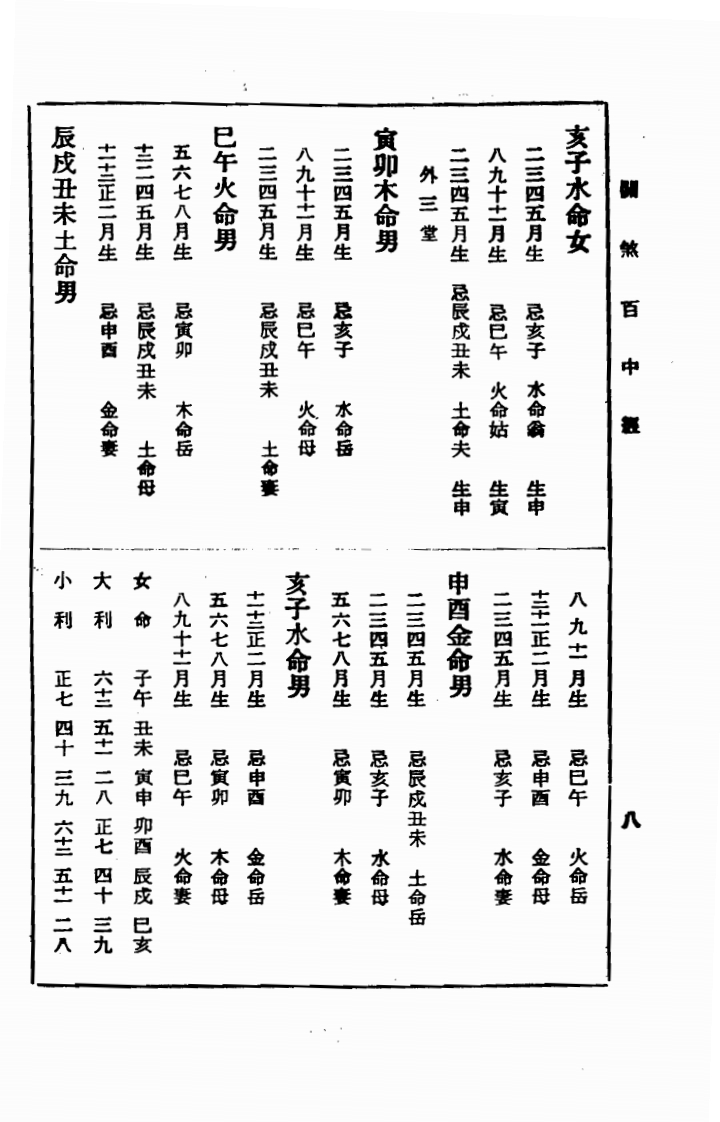 關煞百中經
八
亥子水命女
二三四五月生 忌亥子 水命翁 生申
八九十十一月生 忌巳午 火命姑 生寅
二三四五月生 忌辰戌丑未 土命夫 生申
外三堂
寅卯木命男
二三四五月生 忌亥子 水命岳
八九十十一月生 忌巳午 火命母
二三四五月生 忌辰戌丑未 土命妻
巳午火命男
五六七八月生 忌寅卯 木命岳
十二二四五月生 忌辰戌丑未 土命母
十一十二正二月生 忌申酉 金命妻
辰戌丑未土命男
八九十一月生 忌巳午 火命岳
十二十一正二月生 忌申酉 金命母
二三四五月生 忌亥子 水命妻
申酉金命男
二三四五月生 忌辰戌丑未 土命岳
二三四五月生 忌亥子 水命母
五六七八月生 忌寅卯 木命妻
亥子水命男
十一十二正二月生 忌申酉 金命岳
五六七八月生 忌寅卯 木命母
八九十十一月生 忌巳午 火命妻
女命 子午 丑未 寅申 卯酉 辰戌 巳亥
大利 六十二 五十一 二八 正七 四十 三九
小利 正七 四十 三九 六十二 五十一 二八